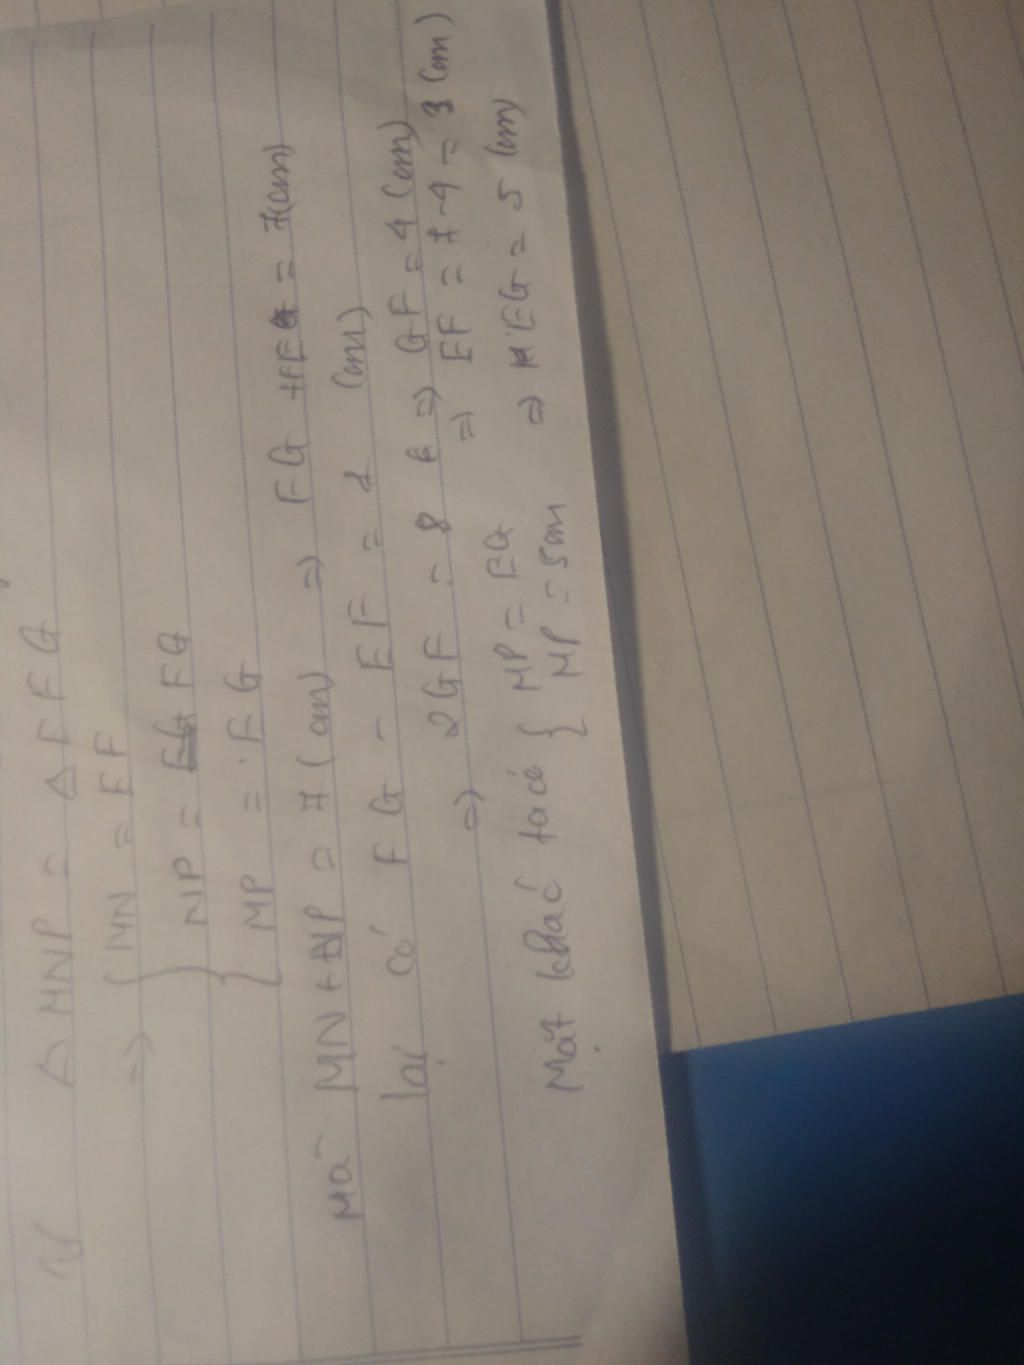 Δ MNP = Δ EFG
=> { MN = EF
NP = FG
MP = EG
Mà MN + NP = 7 (cm) => FG + FE = 7 (cm)
lại có FG - EF = 1 (cm)
=> 2GF = 8 => GF = 4 (cm)
=> EF = 7 - 4 = 3 (cm)
Mặt khác ta có { MP = EG
MP = 5cm => EG = 5 (cm)